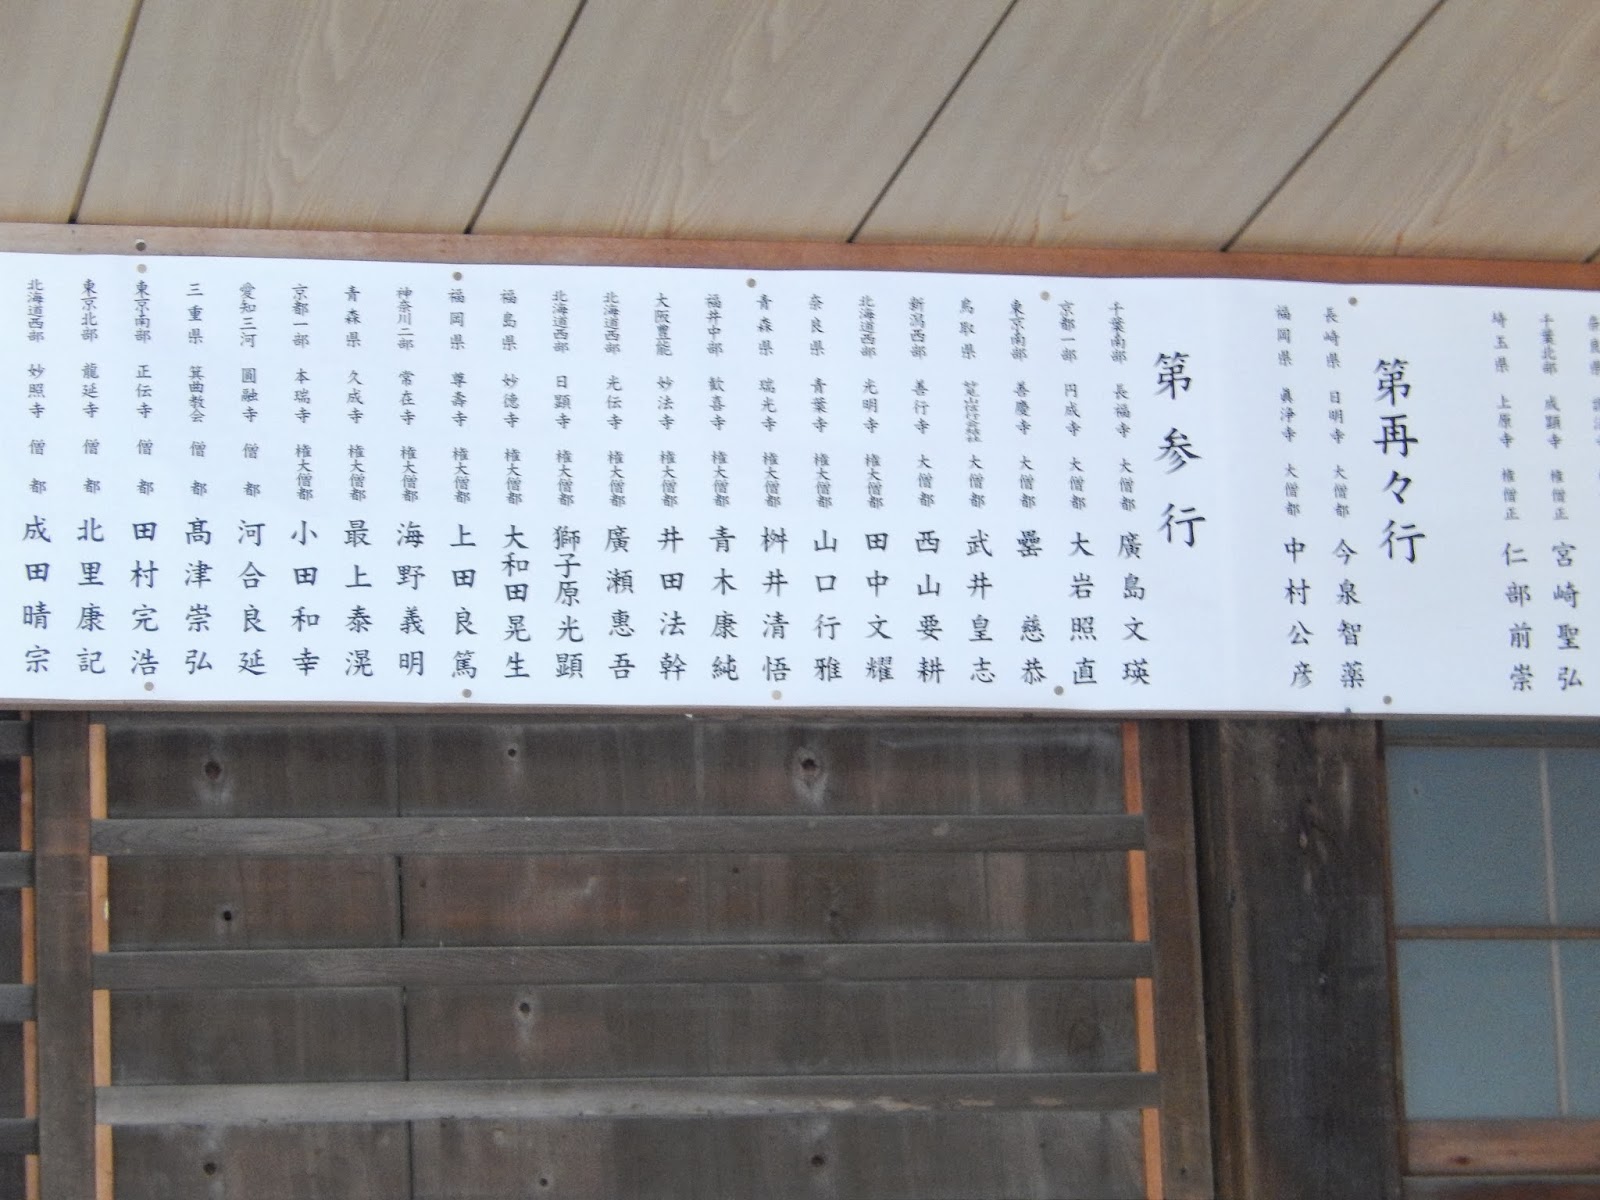 千葉北部 成顕寺 権僧正 宮崎聖弘
埼玉県 上原寺 権僧正 仁部前崇
第再々行
長崎県 日明寺 大僧都 今泉智薬
福岡県 眞浄寺 大僧都 中村公彦
第参行
千葉南部 長福寺 大僧都 廣島文瑛
京都一部 円成寺 大僧都 大岩照直
東京南部 善慶寺 大僧都 慈恭
鳥取県 大僧都 武井皇志
新潟西部 善行寺 大僧都 西山要耕
北海道西部 光明寺 権大僧都 田中文耀
奈良県 青葉寺 権大僧都 山口行雅
青森県 瑞光寺 権大僧都 桝井清悟
福井中部 歓喜寺 権大僧都 青木康純
大阪豊能 妙法寺 権大僧都 井田法幹
北海道西部 光伝寺 権大僧都 廣瀬惠吾
北海道西部 日顕寺 権大僧都 獅子原光顕
福島県 妙徳寺 権大僧都 大和田晃生
福岡県 尊壽寺 権大僧都 上田良篤
神奈川二部 常在寺 権大僧都 海野義明
青森県 久成寺 権大僧都 最上泰滉
京都一部 本瑞寺 権大僧都 小田和幸
愛知三河 圓融寺 僧都 河合良延
三重県 箕曲教会 僧都 髙津崇弘
東京南部 正伝寺 僧都 田村完浩
東京北部 龍延寺 僧都 北里康記
北海道西部 妙照寺 僧都 成田晴宗